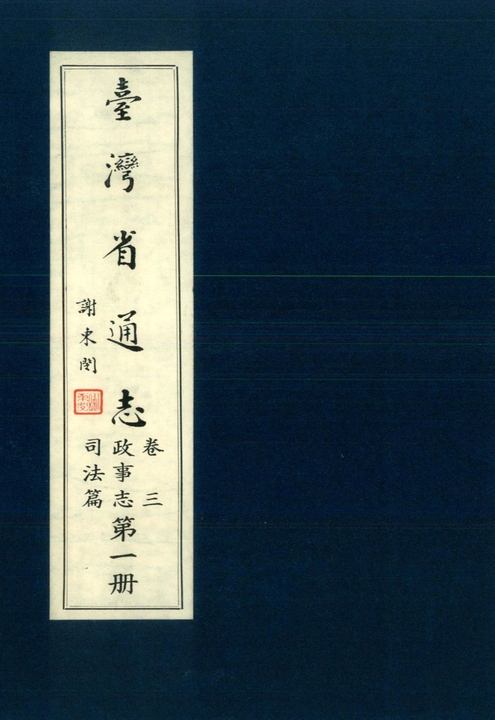 臺灣省通志
卷三
政事志
司法篇
第一册
謝東閔